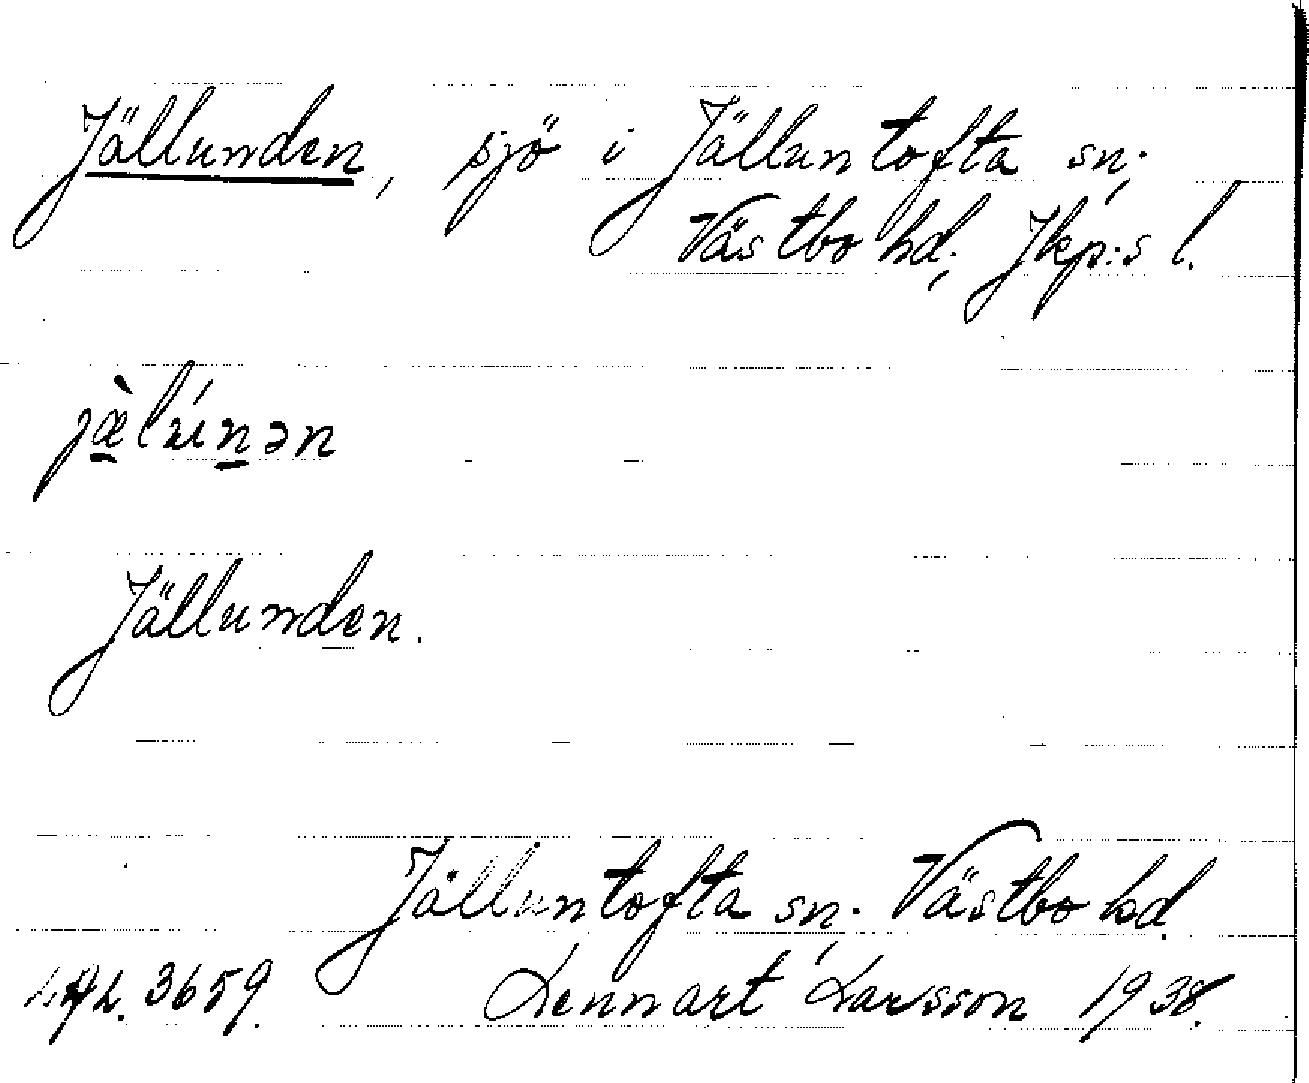 Jällunden, sjö i Jälluntofta sn;
Västbo hd; Jkp:s l.
jæ̀lúnən
Jällunden.
Jälluntofta sn; Västbo hd.
3659. Lennart Larsson 1938.